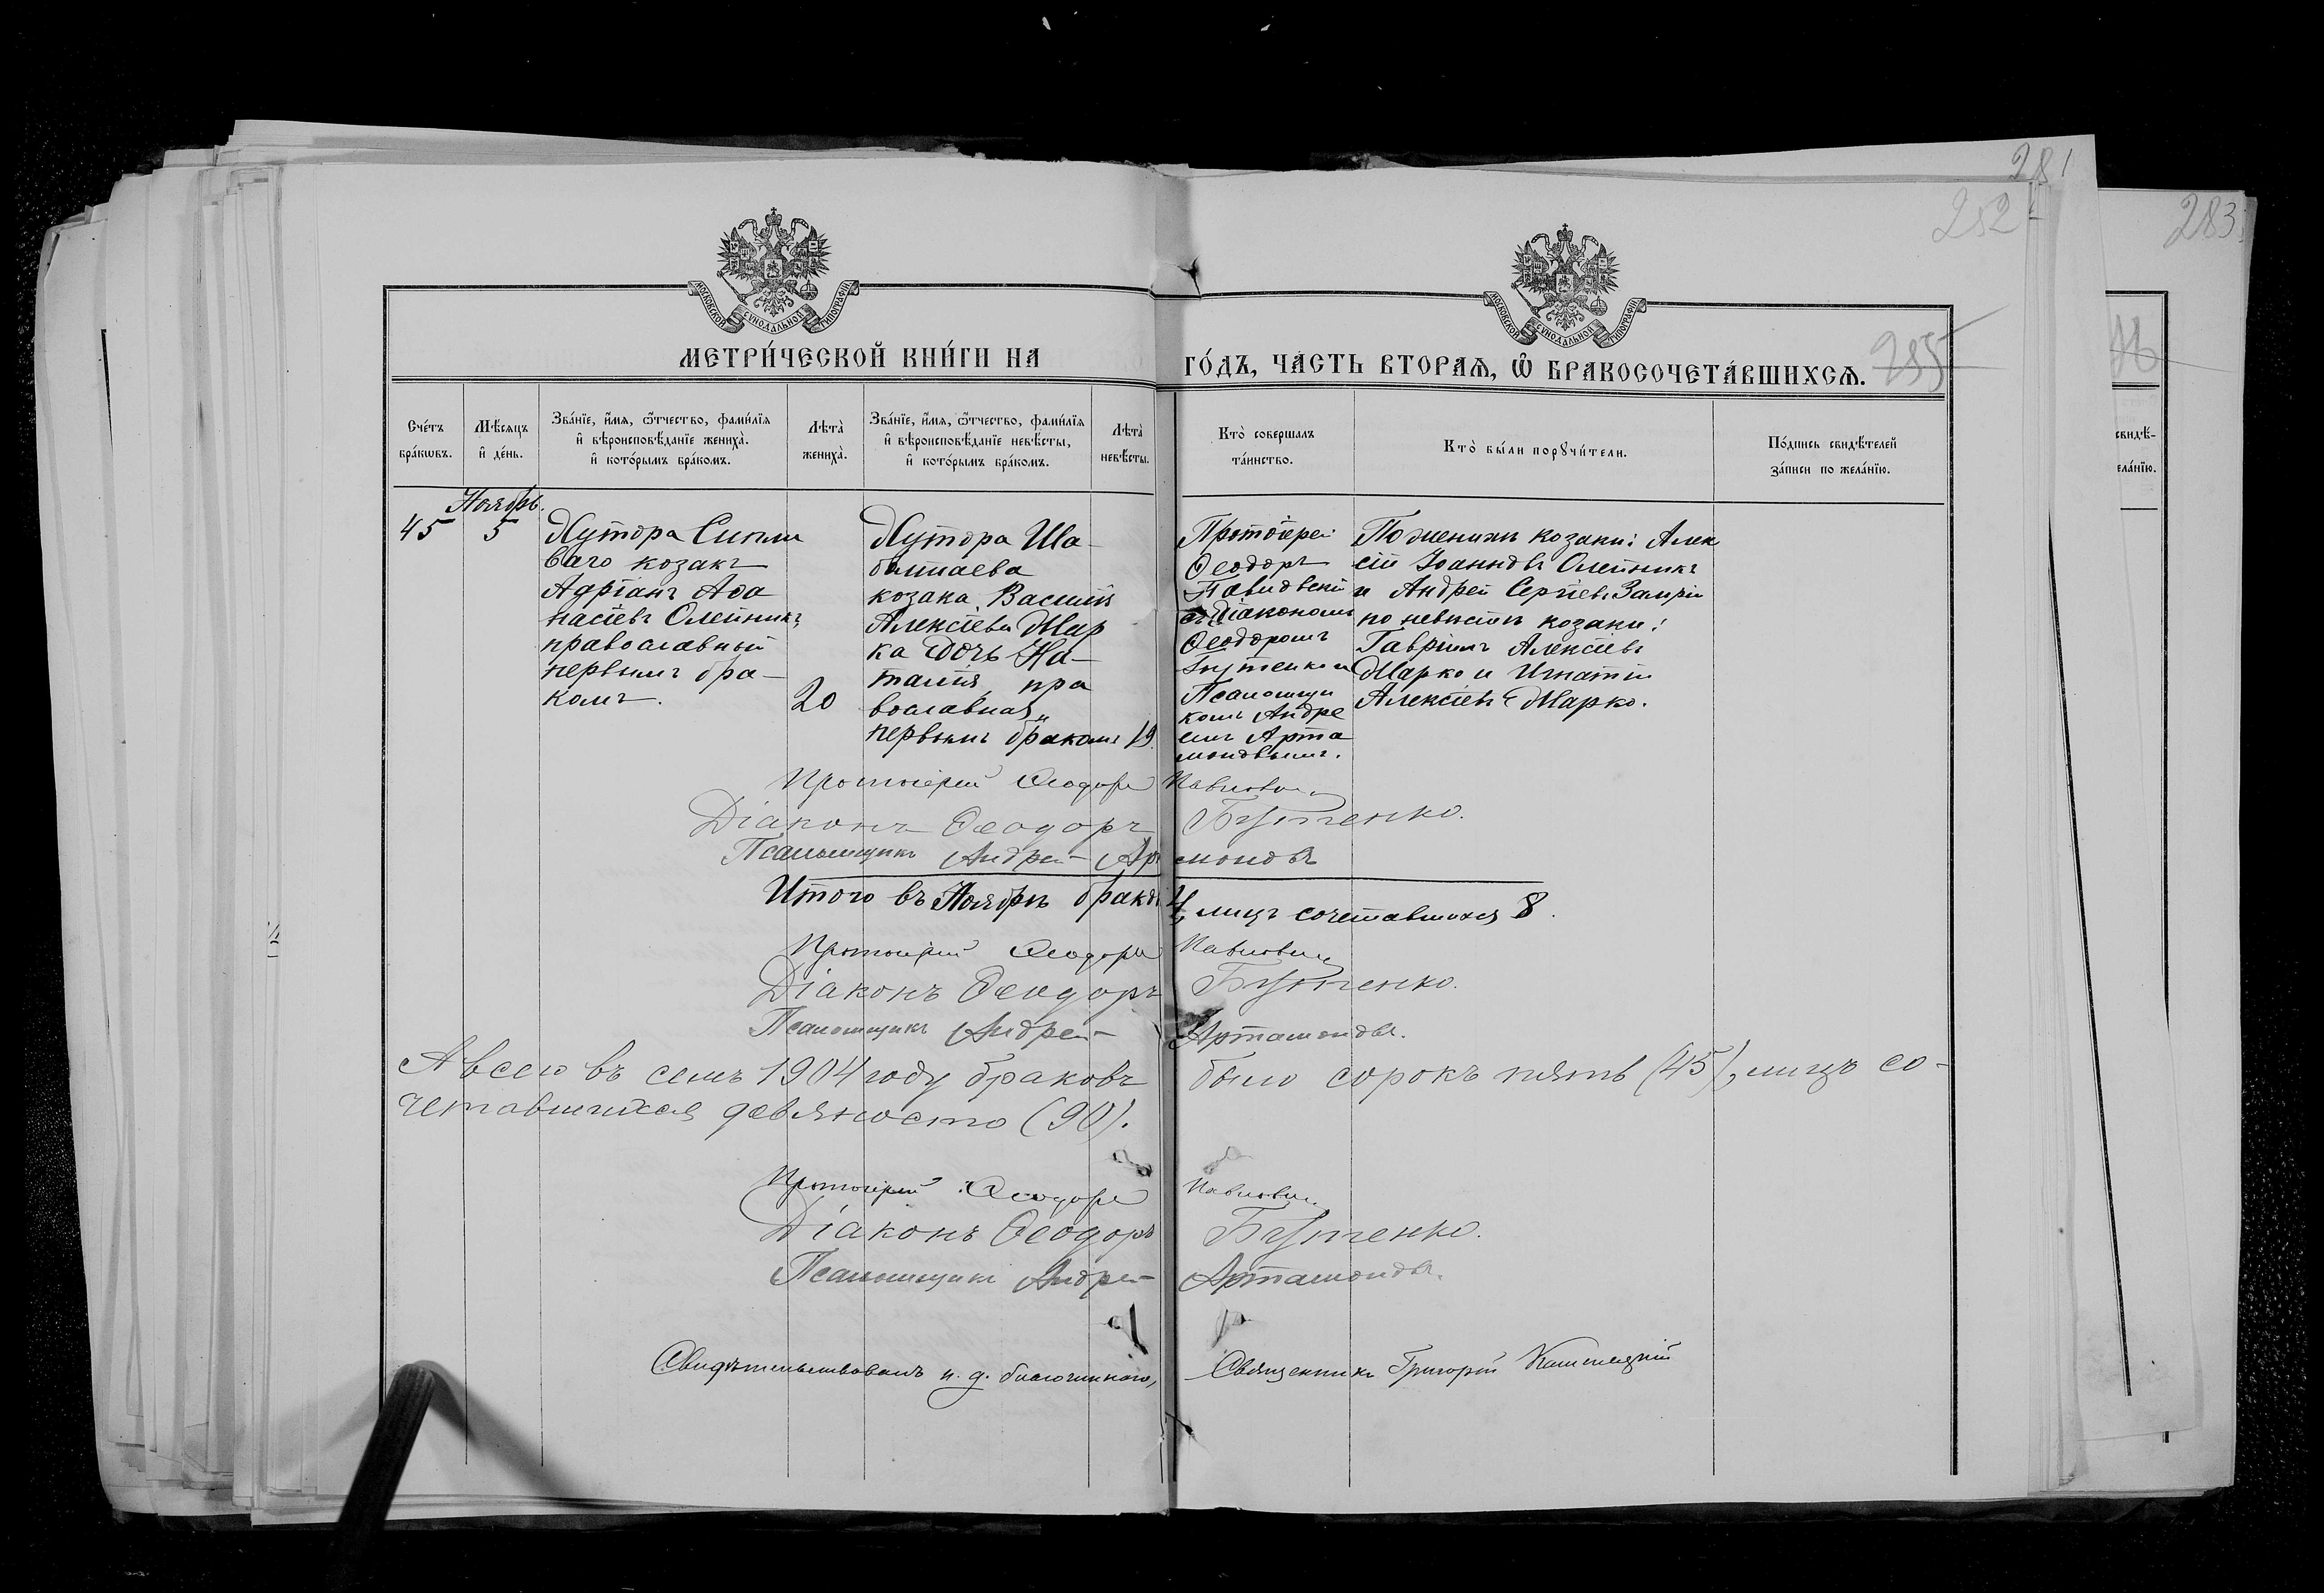 281
252
283
МОСКОВСКОЙ СѴНОДАЛЬНОЙ ТИПОГРАФІИ
МОСКОВСКОЙ СѴНОДАЛЬНОЙ ТИПОГРАФІИ
МЕТРИ́ЧЕСКОЙ КНИ́ГИ НА ГО́ДЪ, ЧА́СТЬ ВТОРАѦ, Ѡ҆ БРАКОСОЧЕТА́ВШИХСѦ.
285
Сче́тъ бра́кѡвъ.
Мѣ́сѧцъ и҆ де́нь.
Зва́нїе, и҆́мѧ, ѻ҆́тчество, фами́лїѧ и҆ вѣроисповѣ́данїе жениха̀. и҆ кото́рымъ бра́комъ.
Лѣта̀ жениха̀.
Зва́нїе, и҆́мѧ, ѻ҆́тчество, фами́лїѧ и҆ вѣроисповѣ́данїе невѣ́сты, и҆ кото́рымъ бра́комъ.
Лѣта̀ невѣ́сты.
Кто̀ соверша́лъ та́инство.
Кто̀ бы́ли порꙋчи́тели.
По́дпись свидѣ́телей за́писи по жела́нїю.
свидѣ́-
ела́нїю.
Ноябрь.
45
5
Хутора Сипли
ваго козакъ
Адріанъ Аѳа
насіевъ Олейникъ,
православный
первымъ бра-
комъ.
20
Хутора Ша-
балтаева
козака Василія
Алексіева Мар
ка дочь На-
талія, пра
вославная,
первымъ бракомъ
19.
Протоіерей
Ѳеодоръ
Павловскій
съ Діакономъ
Ѳеодоромъ
Бутенко и
Псаломщи
комъ Андре
емъ Арта
моновымъ.
По женихѣ козаки: Алек
сій Іоанновъ Олейникъ
и Андрей Сергіевъ Заярій
по невѣстѣ козаки:
Гавріилъ Алексіевъ
Марко и Игнатій
Алексіевъ Марко.
Протоіерей Ѳеодоръ Павловскій
Діаконъ Ѳеодоръ Бутенко.
Псаломщикъ Андрей Артамоновъ
Итого въ Ноябрѣ браковъ 4, лицъ сочетавшихся 8.
Протоіерей Ѳеодоръ Павловскій
Діаконъ Ѳеодоръ Бутенко.
Псаломщикъ Андрей Артамоновъ.
А всего въ семъ 1904 году браковъ было сорокъ пять (45), лицъ со-
четавшихся девяносто (90).
Протоіерей Ѳеодоръ Павловскій
Діаконъ Ѳеодоръ Бутенко.
Псаломщикъ Андрей Артамоновъ.
Свидѣтельствовалъ и. д. благочиннаго, Священникъ Григорій